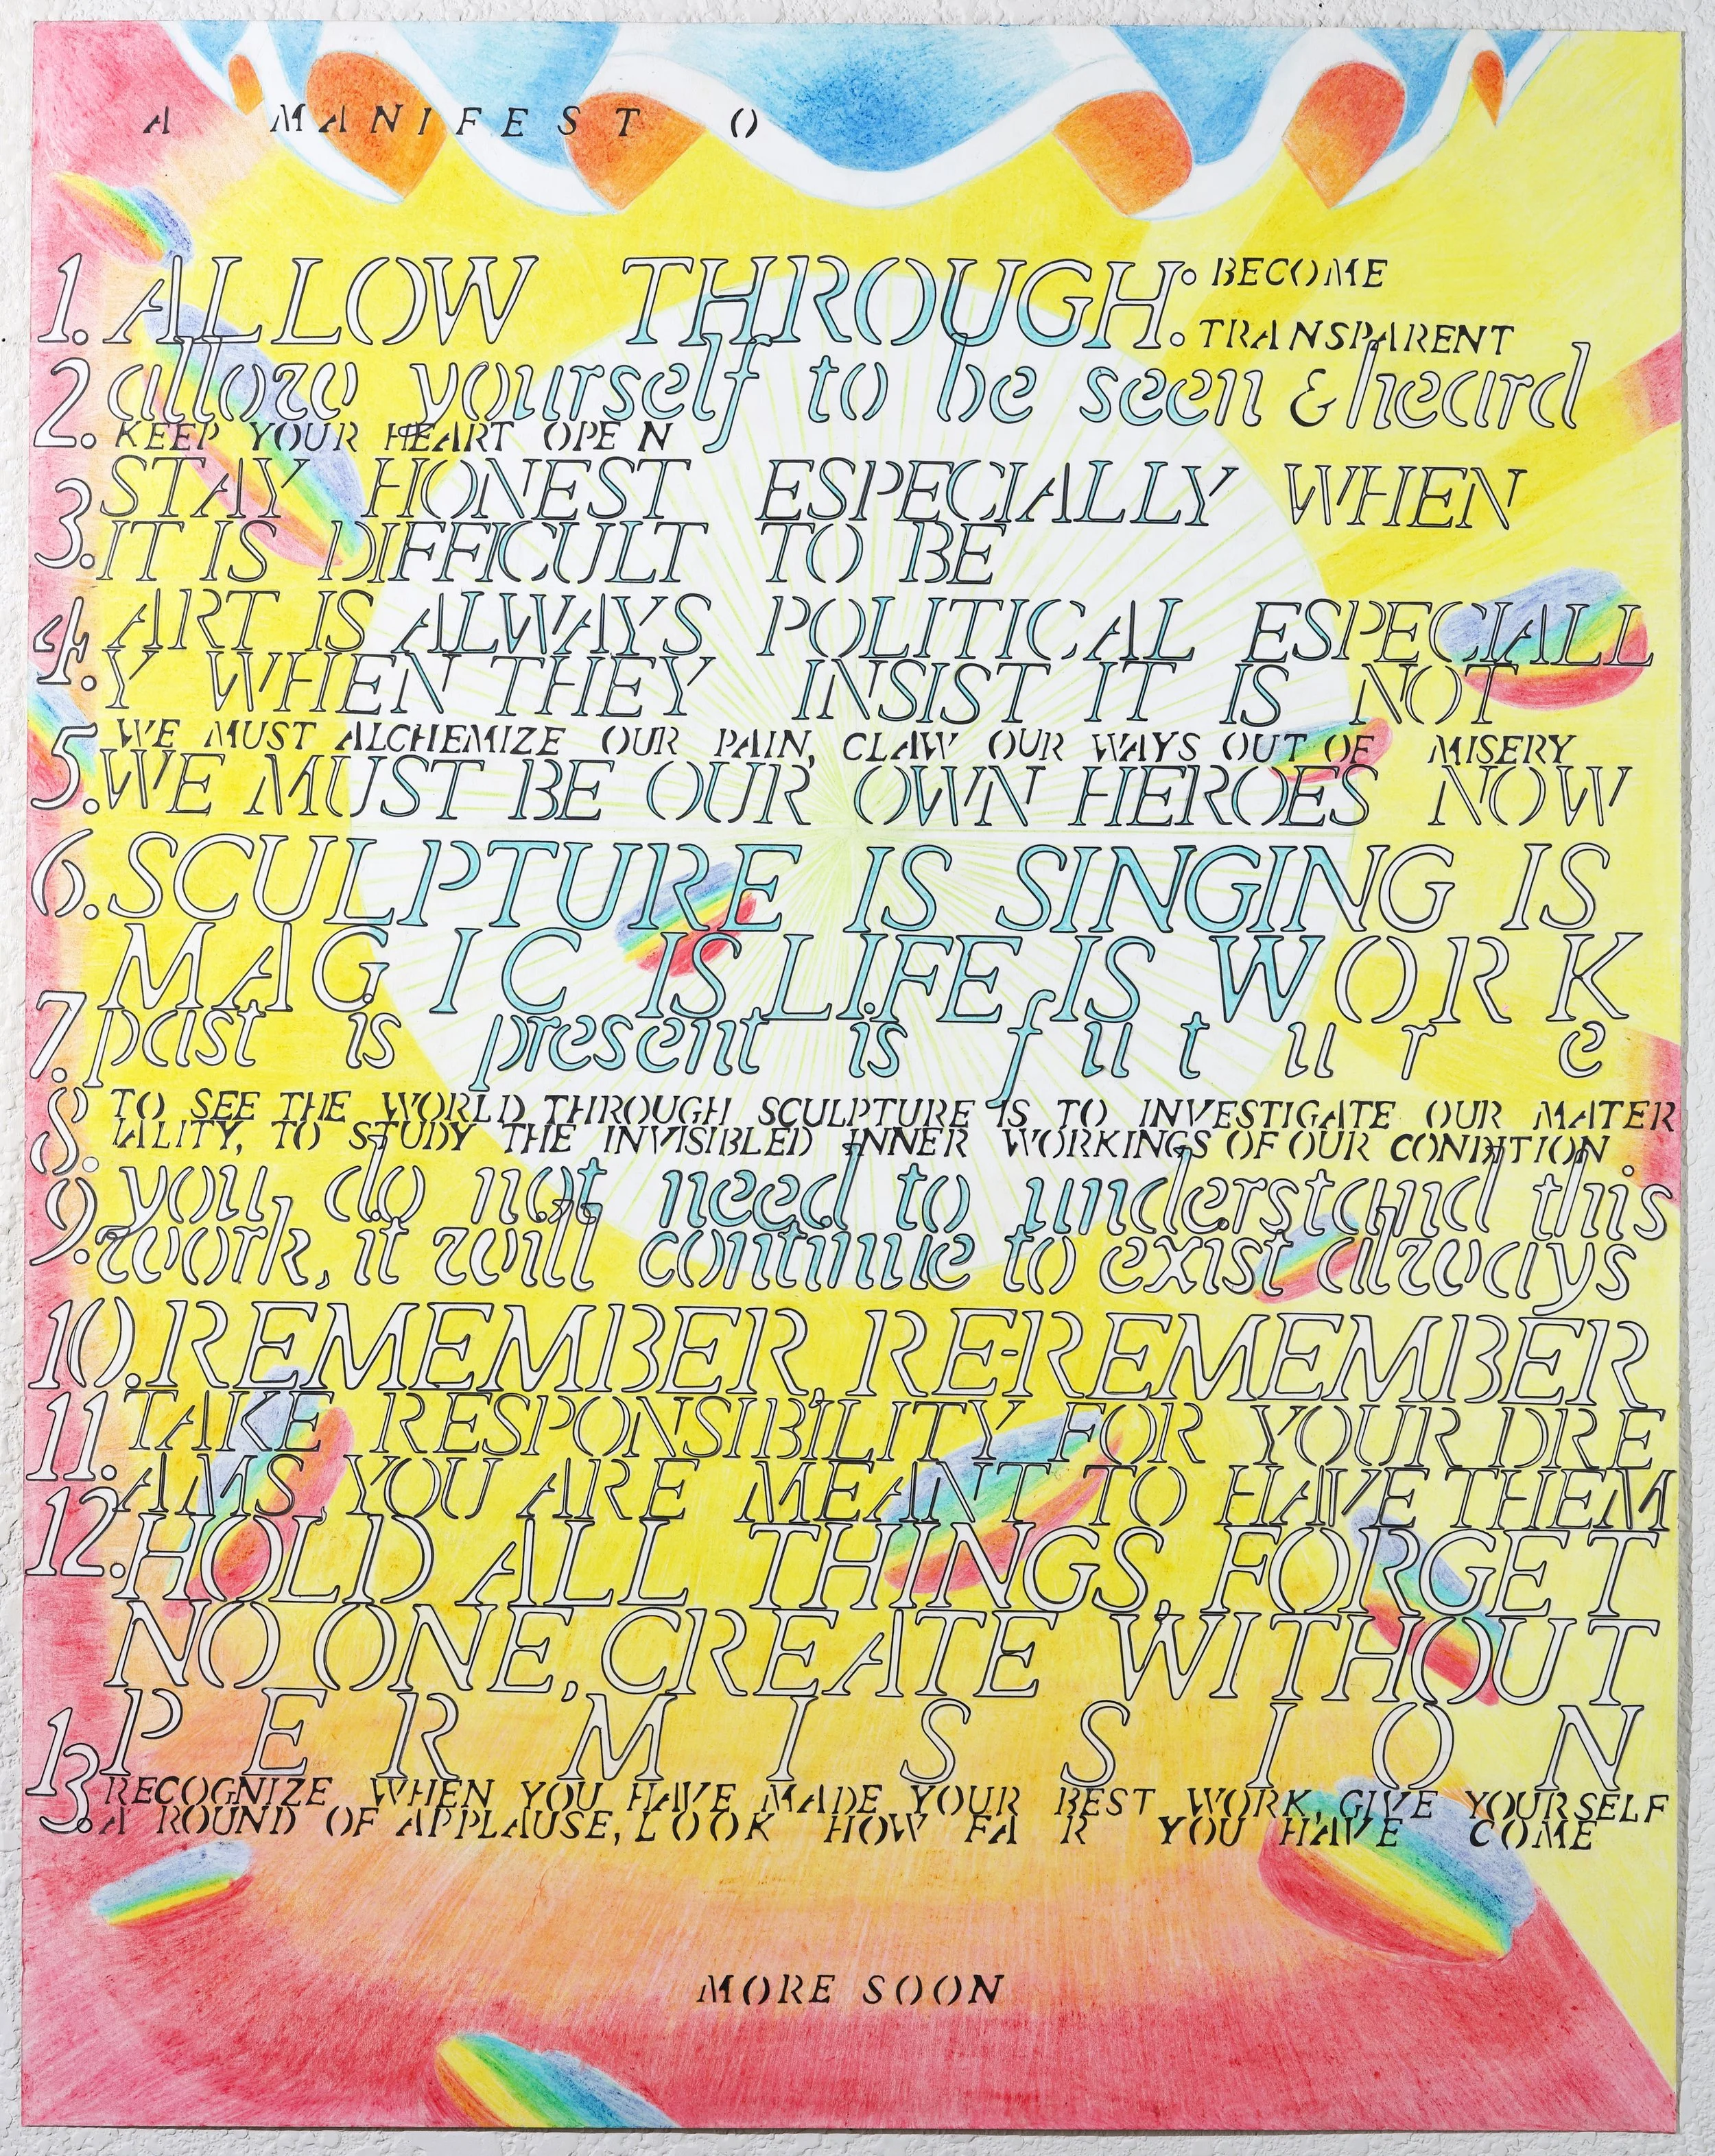 A MANIFEST O
1. ALLOW THROUGH: BECOME
TRANSPARENT
2. allow yourself to be seen & heard
KEEP YOUR HEART OPE N
3. STAY HONEST ESPECIALLY WHEN
IT IS DIFFICULT TO BE
4. ART IS ALWAYS POLITICAL ESPECIALL
Y WHEN THEY INSIST IT IS NOT
5. WE MUST ALCHEMIZE OUR PAIN, CLAW OUR WAYS OUT OF MISERY
WE MUST BE OUR OWN HEROES NOW
6. SCULPTURE IS SINGING IS
MAGIC IS LIFE IS WORK
7. past is present is future
8. TO SEE THE WORLD THROUGH SCULPTURE IS TO INVESTIGATE OUR MATER
IALITY, TO STUDY THE INVISIBLED INNER WORKINGS OF OUR CONDITION.
9. you do not need to understand this
work, it will continue to exist always
10. REMEMBER, RE-REMEMBER
11. TAKE RESPONSIBILITY FOR YOUR DRE
AMS, YOU ARE MEANT TO HAVE THEM
12. HOLD ALL THINGS, FORGET
NO ONE, CREATE WITHOUT
PERMISSION
13. RECOGNIZE WHEN YOU HAVE MADE YOUR BEST WORK, GIVE YOURSELF
A ROUND OF APPLAUSE, LOOK HOW FA R YOU HAVE COME
MORE SOON